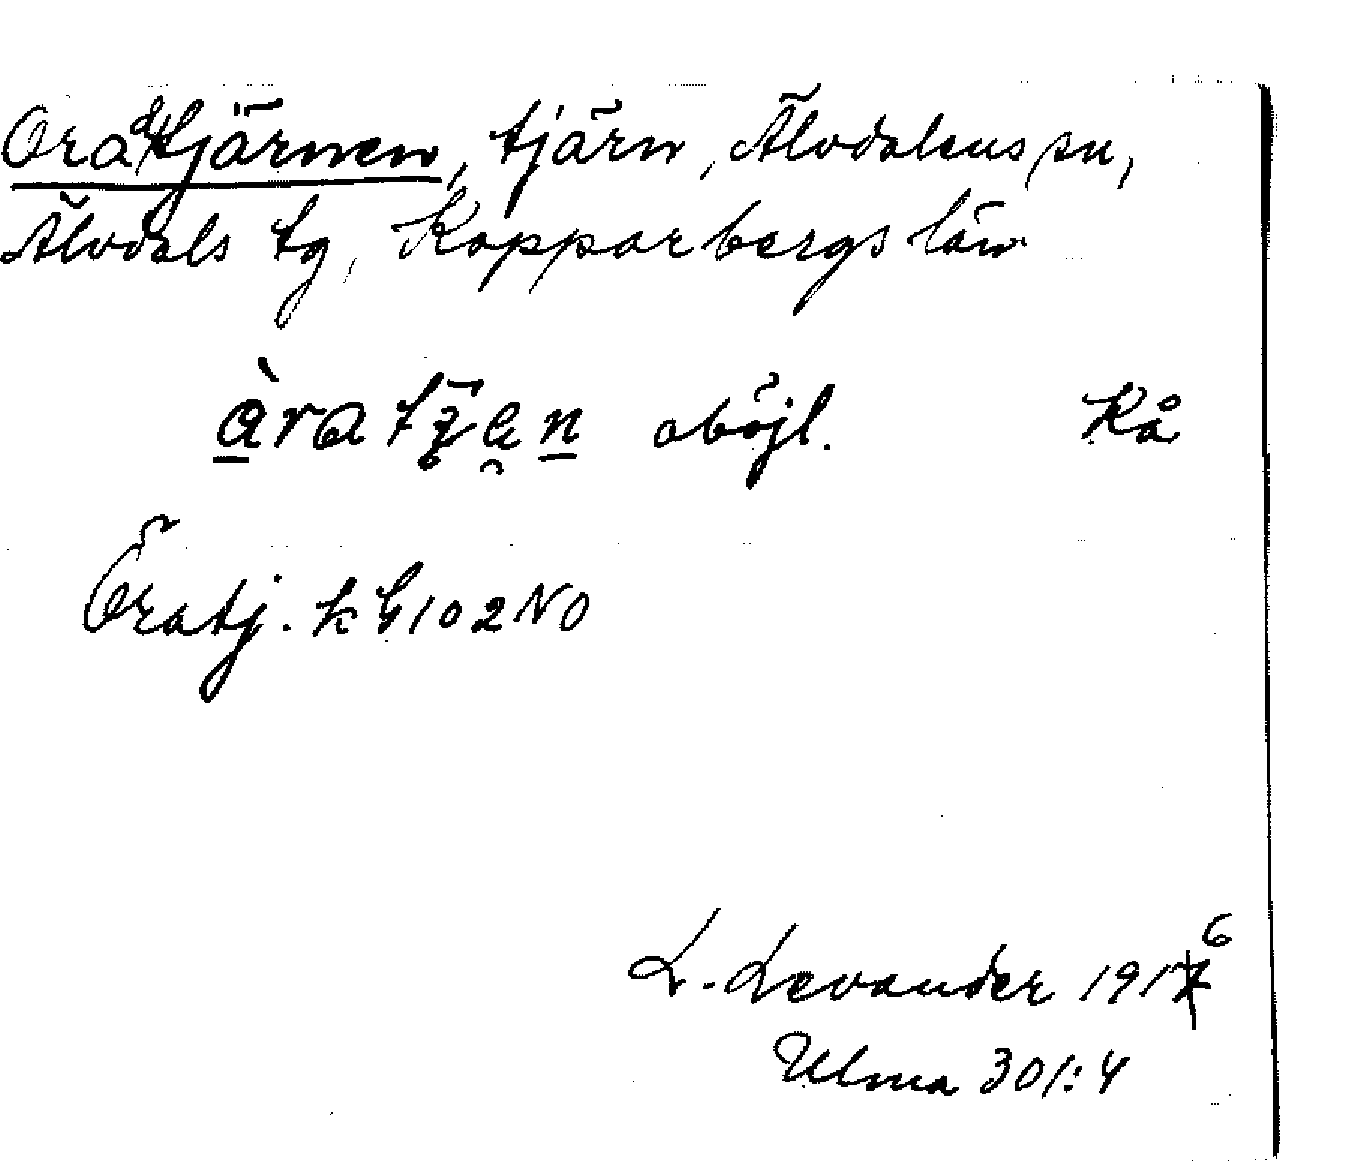 Oradtjärnen, tjärn, Älvdalens sn,
Älvdals tg, Kopparbergs län
oböjl. Kå
Öratj. k G 102 NO
L. Levander 1916
Ulma 301:4